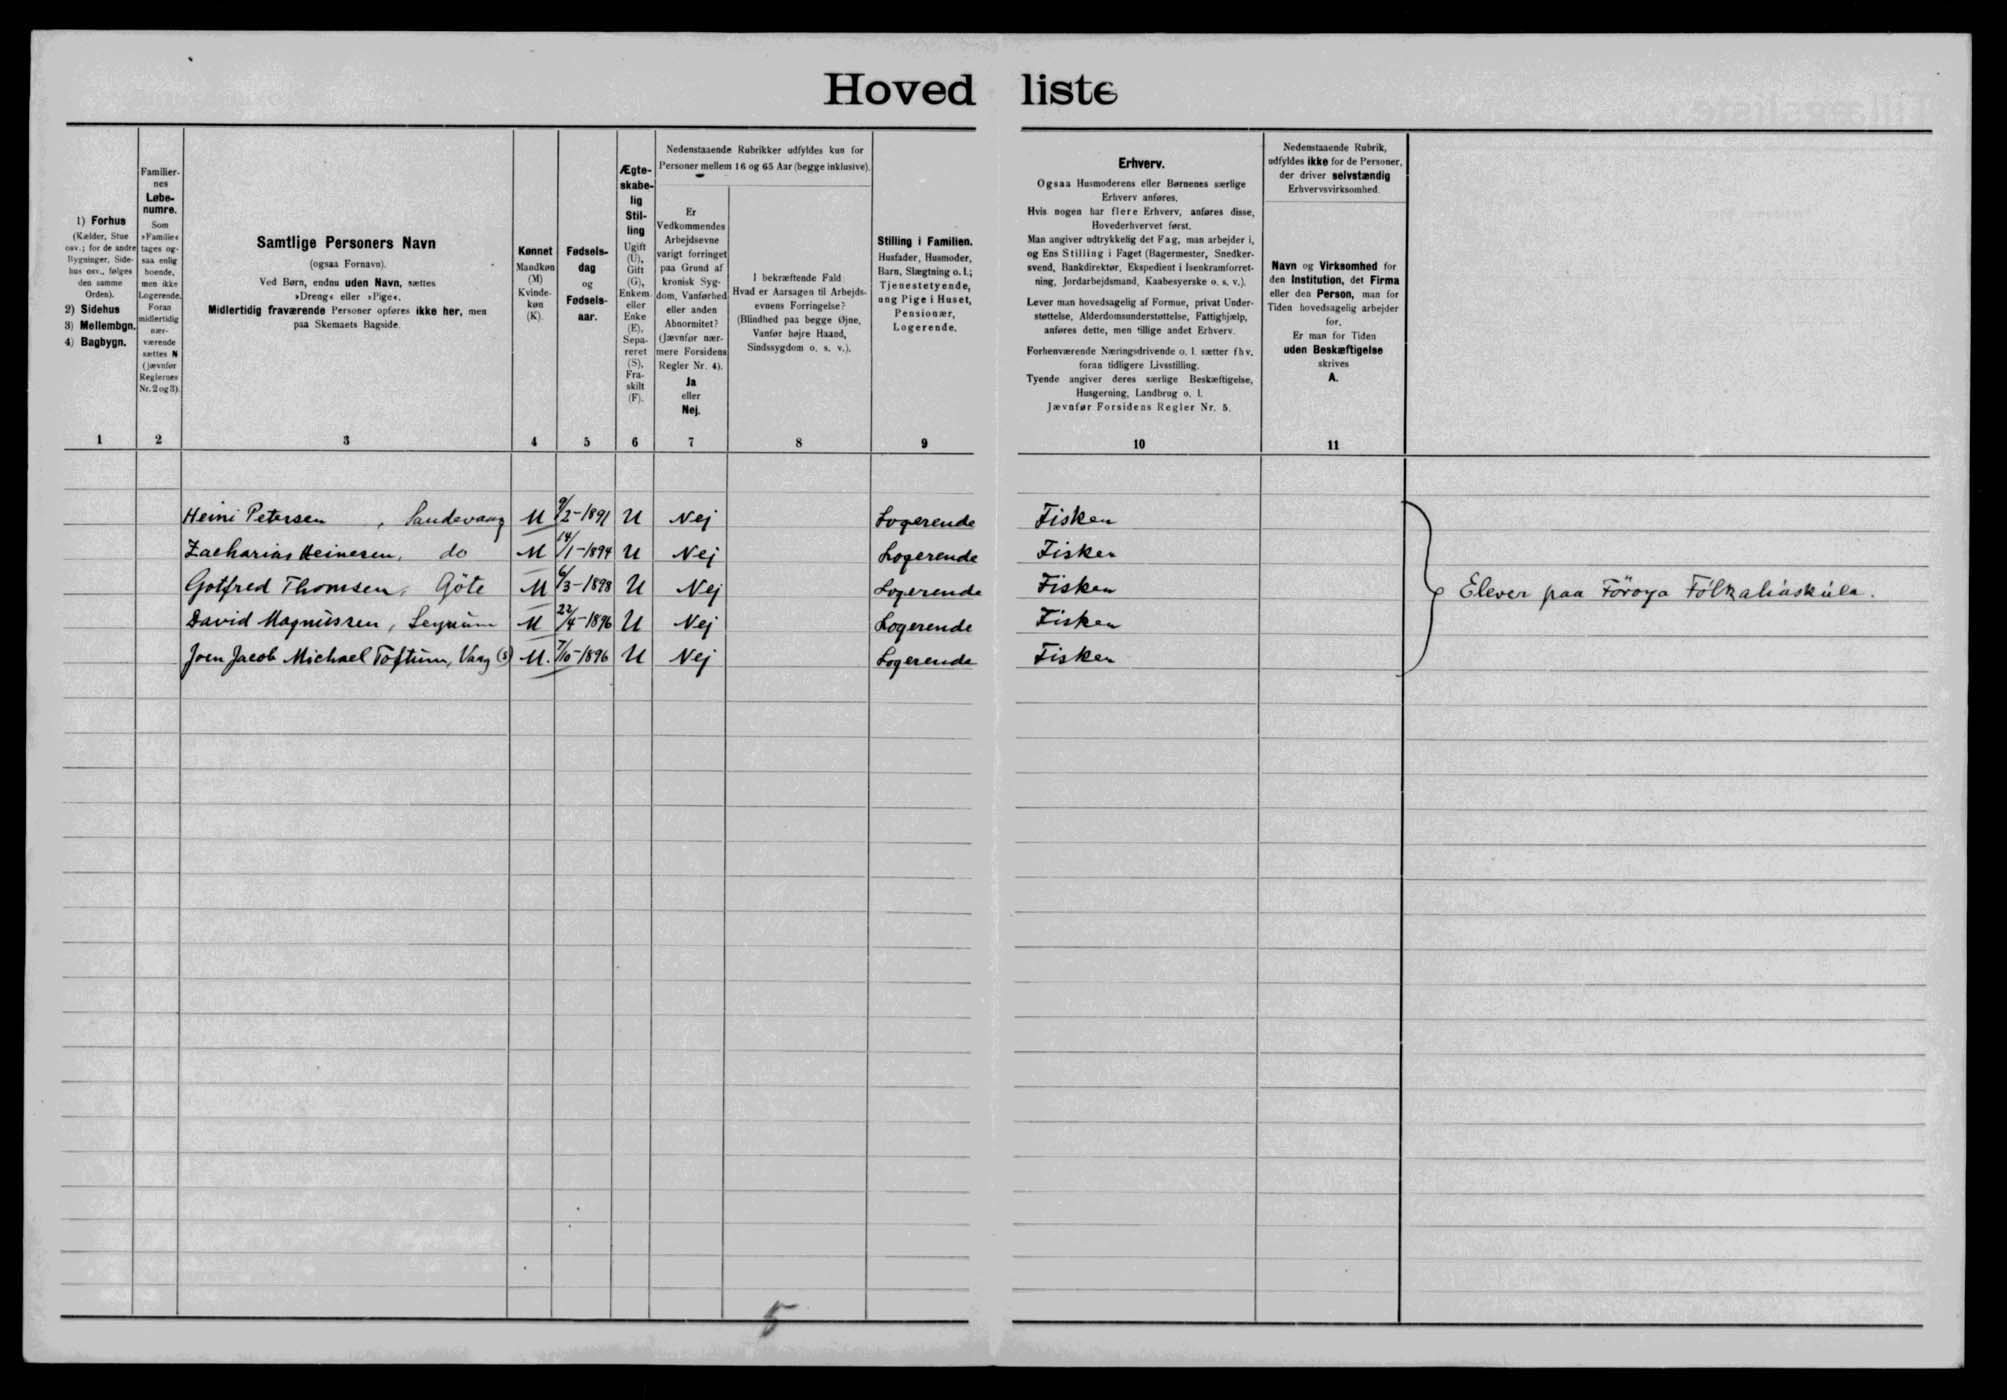 Hovedliste
1) Forhus
(Kælder, Stue
osv.; for de andre
Bygninger, Side-
hus osv., følges
den samme
Orden).
2) Sidehus
3) Mellembgn.
4) Bagbygn.
1
Familier-
nes
Løbe-
numre.
Som
»Familie«
tages og-
saa enlig
boende,
men ikke
Logerende.
Foran
midlertidig
nær-
værende
sættes N
(jævnfør
Reglernes
Nr. 2 og 3).
2
Samtlige Personers Navn
(ogsaa Fornavn).
Ved Børn, endnu uden Navn, sættes
»Dreng« eller »Pige«.
Midlertidig fraværende Personer opføres ikke her, men
paa Skemaets Bagside.
3
Kønnet
Mandkøn
(M)
Kvinde-
køn
(K).
4
Fødsels-
dag
og
Fødsels-
aar.
5
Ægte-
skabe-
lig
Stil-
ling
Ugift
(U),
Gift
(G),
Enkem.
eller
Enke
(E),
Sepa-
reret
(S),
Fra-
skilt
(F).
6
Nedenstaaende Rubrikker udfyldes kun for
Personer mellem 16 og 65 Aar (begge inklusive).
Er
Vedkommendes
Arbejdsevne
varigt forringet
paa Grund af
kronisk Syg-
dom, Vanførhed
eller anden
Abnormitet?
(Jævnfør nær-
mere Forsidens
Regler Nr. 4).
Ja
eller
Nej.
7
I bekræftende Fald:
Hvad er Aarsagen til Arbejds-
evnens Forringelse?
(Blindhed paa begge Øjne,
Vanfør højre Haand,
Sindssygdom o. s. v.).
8
Stilling i Familien.
Husfader, Husmoder,
Barn, Slægtning o. l.;
Tjenestetyende,
ung Pige i Huset,
Pensionær,
Logerende.
9
Erhverv.
Ogsaa Husmoderens eller Børnenes særlige
Erhverv anføres.
Hvis nogen har flere Erhverv, anføres disse,
Hovederhvervet først.
Man angiver udtrykkelig det Fag, man arbejder i,
og Ens Stilling i Faget (Bagermester, Snedker-
svend, Bankdirektør, Ekspedient i Isenkramforret-
ning, Jordarbejdsmand, Kaabesyerske o. s. v.).
Lever man hovedsagelig af Formue, privat Under-
støttelse, Alderdomsunderstøttelse, Fattighjælp,
anføres dette, men tillige andet Erhverv.
Forhenværende Næringsdrivende o. l. sætter fhv.
foran tidligere Livsstilling.
Tyende angiver deres særlige Beskæftigelse,
Husgerning, Landbrug o. l.
Jævnfør Forsidens Regler Nr. 5.
10
Nedenstaaende Rubrik,
udfyldes ikke for de Personer,
der driver selvstændig
Erhvervsvirksomhed.
Navn og Virksomhed for
den Institution, det Firma
eller den Person, man for
Tiden hovedsagelig arbejder
for.
Er man for Tiden
uden Beskæftigelse
skrives
A.
11
Heini Petersen, Sandevaag M 9/2-1891 U Nej Logerende Fisker
Zacharias Heinesen, do M 14/1-1894 U Nej Logerende Fisker
Gotfred Thomsen, Göte M 6/3-1898 U Nej Logerende Fisker Elever paa Föroya Fólkaháskúla.
David Magnússen, Leynum M 22/4-1896 U Nej Logerende Fisker
Joen Jacob Michael Toftum, Vaag (S) M. 7/10-1896 U Nej Logerende Fisker
5